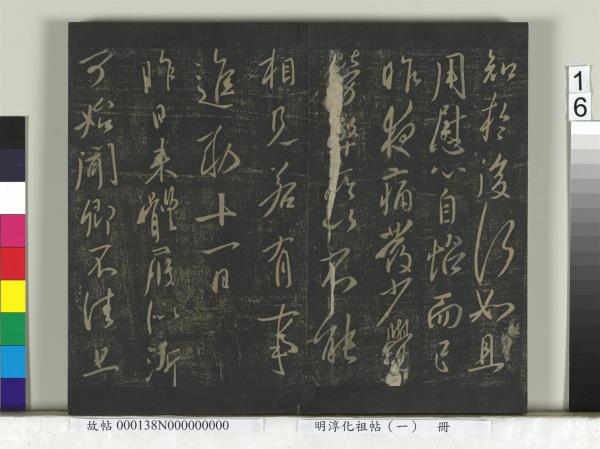 知於後行如且
用慰心自怡而已
昨夜痛發少覺
勞弊所以不能
相見若有事
進動十一日
昨日來體履似漸
可始聞卿不佳且
16
故帖 000138N000000000
明淳化祖帖（一） 冊